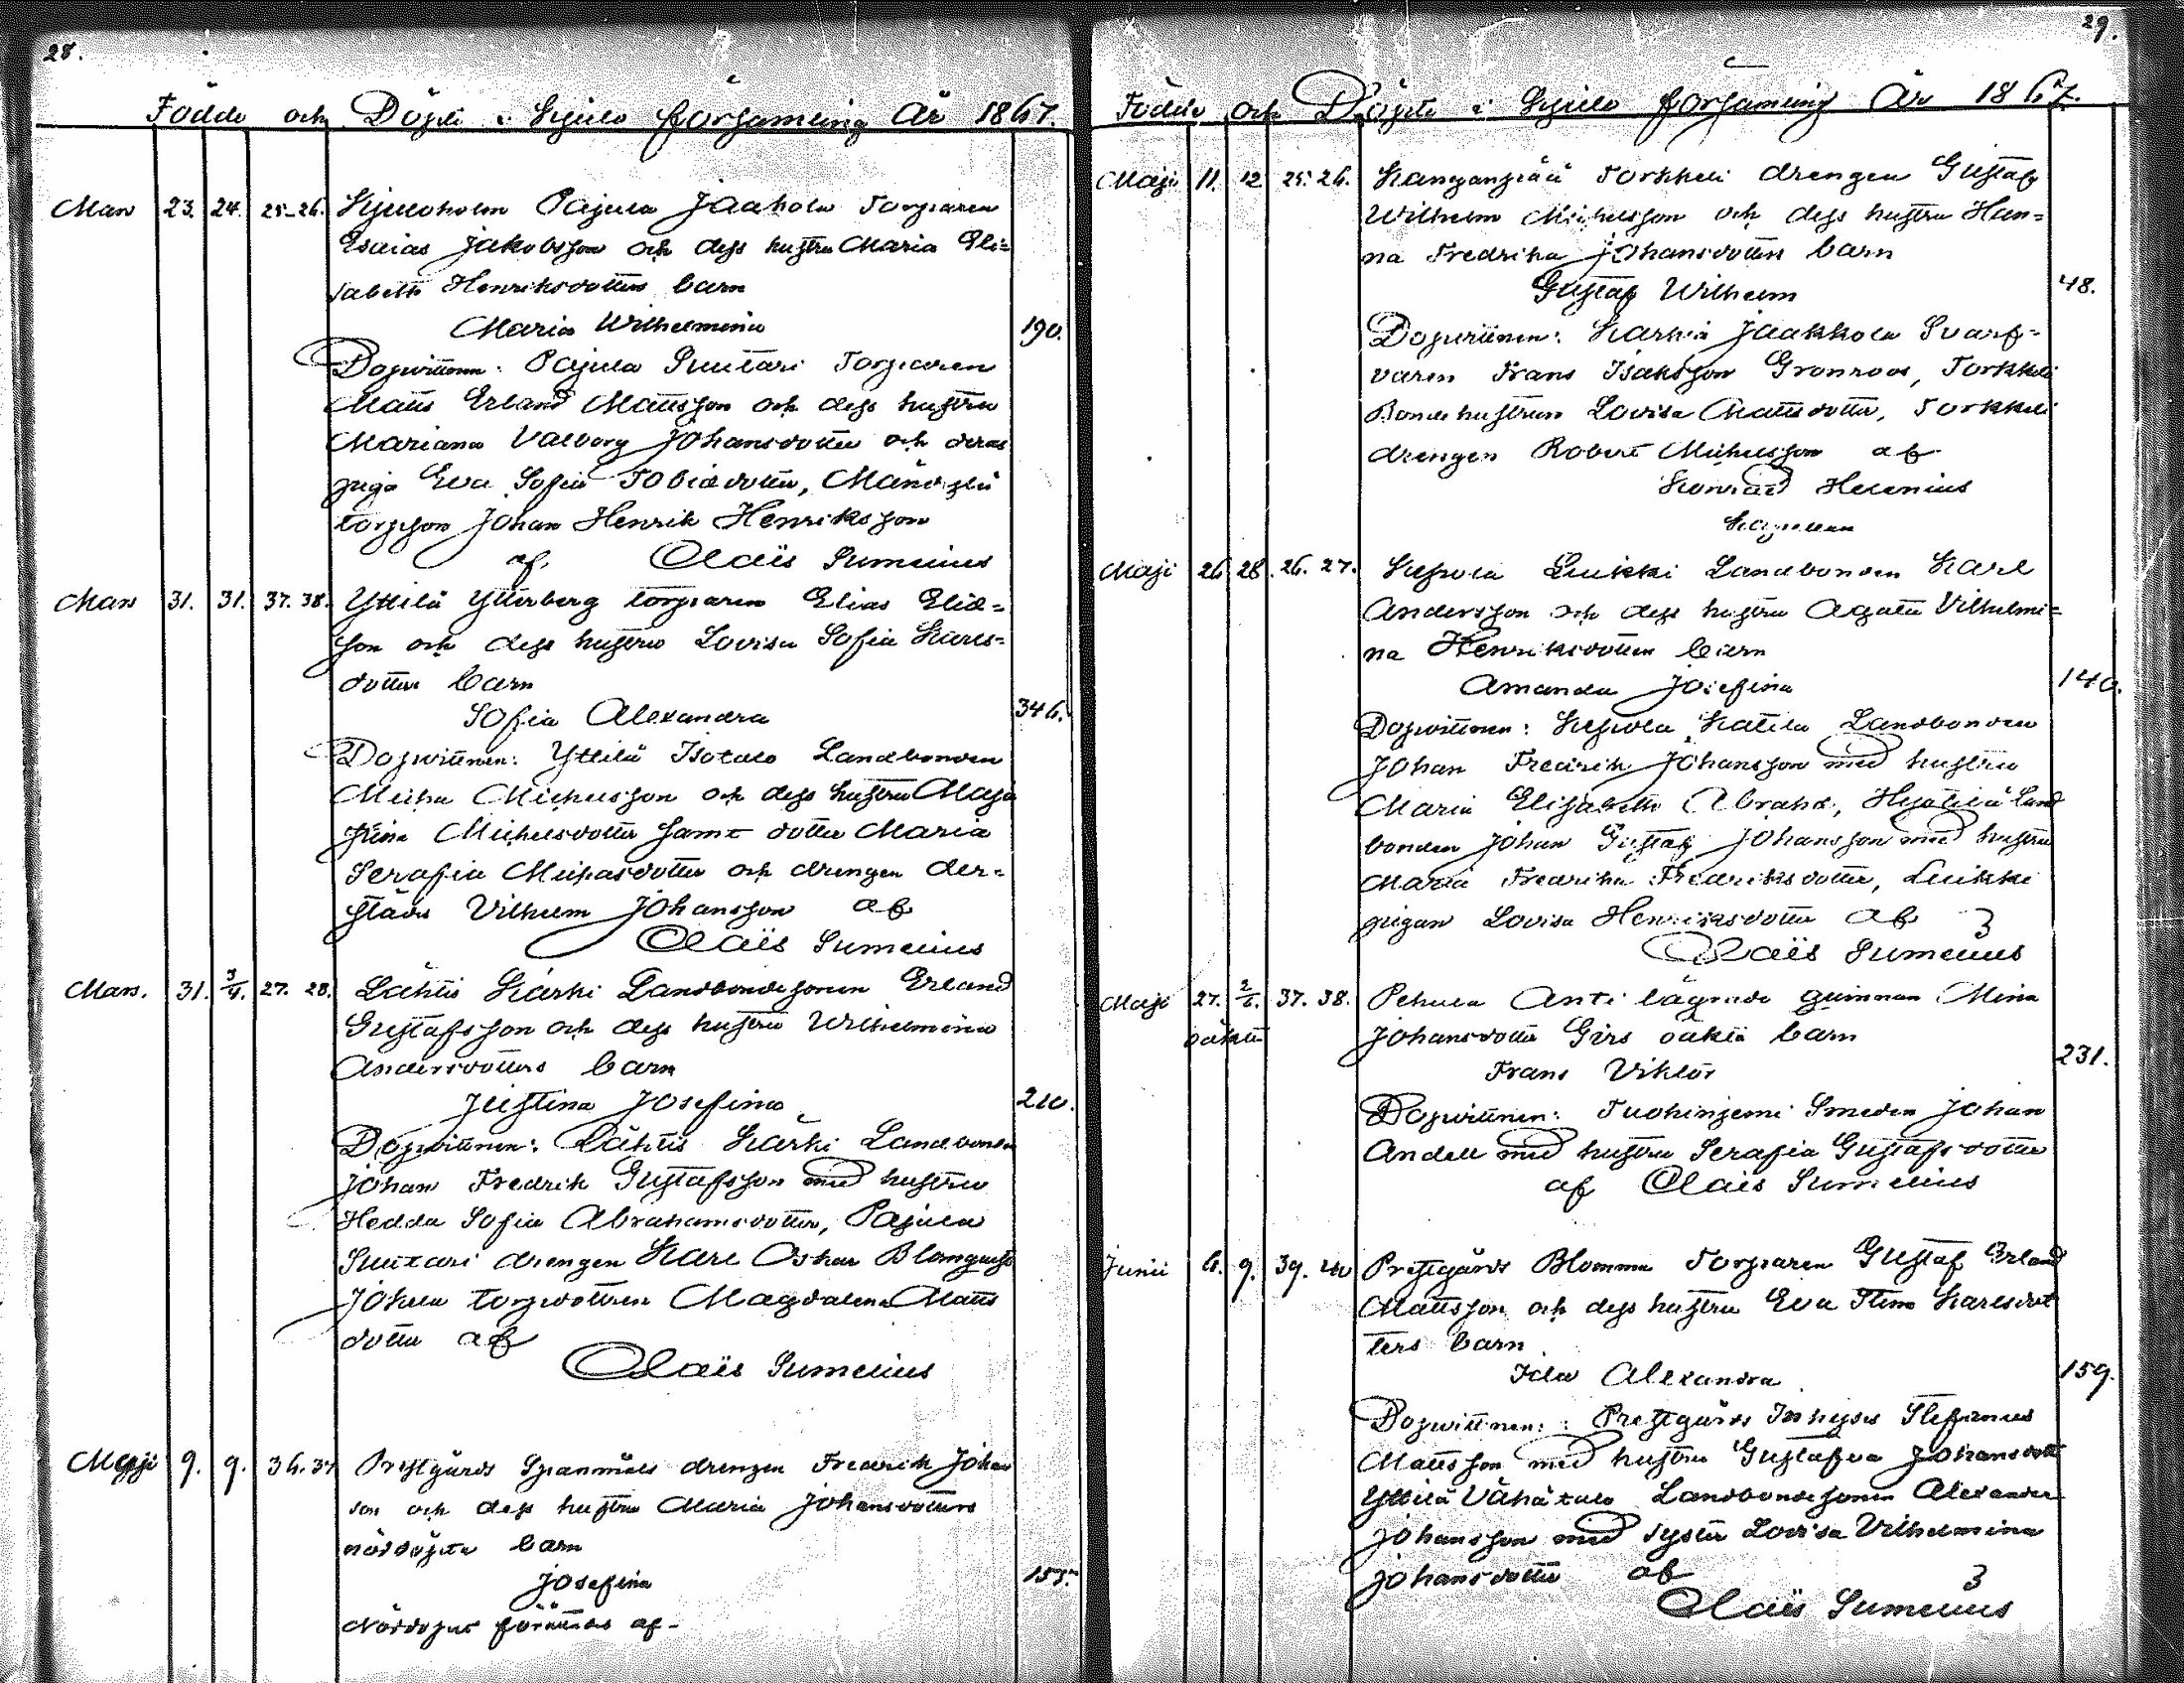 28.
Födde och Döpte i Kjulo församling År 1867.
Mars 23. 24. 25-26. Kjuloholm Pajula Jaakola Torparen
Esaias Jakobsson och dess hustru Maria Eli=
sabeth Henriksdotters barn
Maria Wilhelmina 190.
Dopvittnen: Pajula Suutari Torparen
Matts Erland Mattsson och dess hustru
Mariana Valborg Johansdotter och deras
piga Eva Sofia Tobiædotter,
torpson Johan Henrik Henriksson
af. Olaus Sumelius
Mars 31. 31. 37. 38. Yttilä Ytterberg torparen Elias Eliæ=
son och dess hustru Lovisa Sofia Karls=
dotters barn
Sofia Alexandra 346.
Dopvittnen: Yttilä Isotalo Landbonden
Mickel Michelsson och dess hustru Maja
Stina Michelsdotter samt dotter Maria
Serafia Michaelsdotter och drengen der=
städs Vilhelm Johansson af
Olaus Sumelius
Mars. 31. 3/4. 27. 28. Lähtis Kärki Landbondesonen Erland
Gustafsson och dess hustru Wilhelmina
Andersdotters barn
Justina Josefina 210.
Dopvittnen: Lähtis Kärki Landbonden
Johan Fredrik Gustafsson med hustru
Hedda Sofia Abrahamsdotter, Pajula
Suutari drengen Karl Oskar Blomqvist
torpdottren Magdalena Matts
dotter af
Olaus Sumelius
Maji 9. 9. 36. 37 Prestgårds Spanmåls drengen Fredrik Johans
son och dess hustru Maria Johansdotters
nöddöpta barn
Josefina 157.
Nöddopet förrättades af-
29.
Födde och Döpte i Kjulo församling År 1867.
Maji 11. 12 25. 26. Kanganpää Torkkeli drengen Gustaf
Wilhelm Michelsson och dess hustru Han=
na Fredrika Johansdotters barn
Gustaf Wilhelm 48.
Dopvittnen: Karhia Jaakkola Svarf=
varen Frans Isaksson Grönroos, Torkkeli
Bondehustrun Lovisa Mattsdotter, Torkkeli
drengen Robert Michelsson af
Konrad Helenius
Kapellan
Maji 26 28. 26. 27. Kepola Luikki Landbonden Karl
Andersson och dess hustru Agata Vilhelmi=
na Henriksdotters barn
Amanda Josefina 140.
Dopvittnen: Kepola Kattila Landbonden
Johan Fredrik Johansson med hustru
Maria Elisabeth Abrahd., Land
bonden Johan Gustaf Johansson med hustru
Maria Fredrika Fredriksdotter, Luikki
pigan Lovisa Henriksdotter af
Olaus Sumelius
Maji 27. 2/6. 37. 38. Pehula Anti lägrade qvinnan Mina
oäkta Johansdotter Girs oäkta barn
Frans Viktor 231.
Dopvittnen: Tuohiniemi Smeden Johan
Andell med hustru Serafia Gustafsdotter
af Olaus Sumelius
Junii 6. 9. 39. 40 Prestgårds Blomma Torparen Gustaf Erland
Mattsson och dess hustru Eva Stina Karlsdot
ters barn
Ida Alexandra 159.
Dopvittnen: Prestgårds Inhyses Stefanus
Mattsson med hustru Gustafva Johansdott
Yttilä Vähätalo Landbondesonen Alexander
Johansson med syster Lovisa Vilhelmina
Johansdotter af
Olaus Sumelius